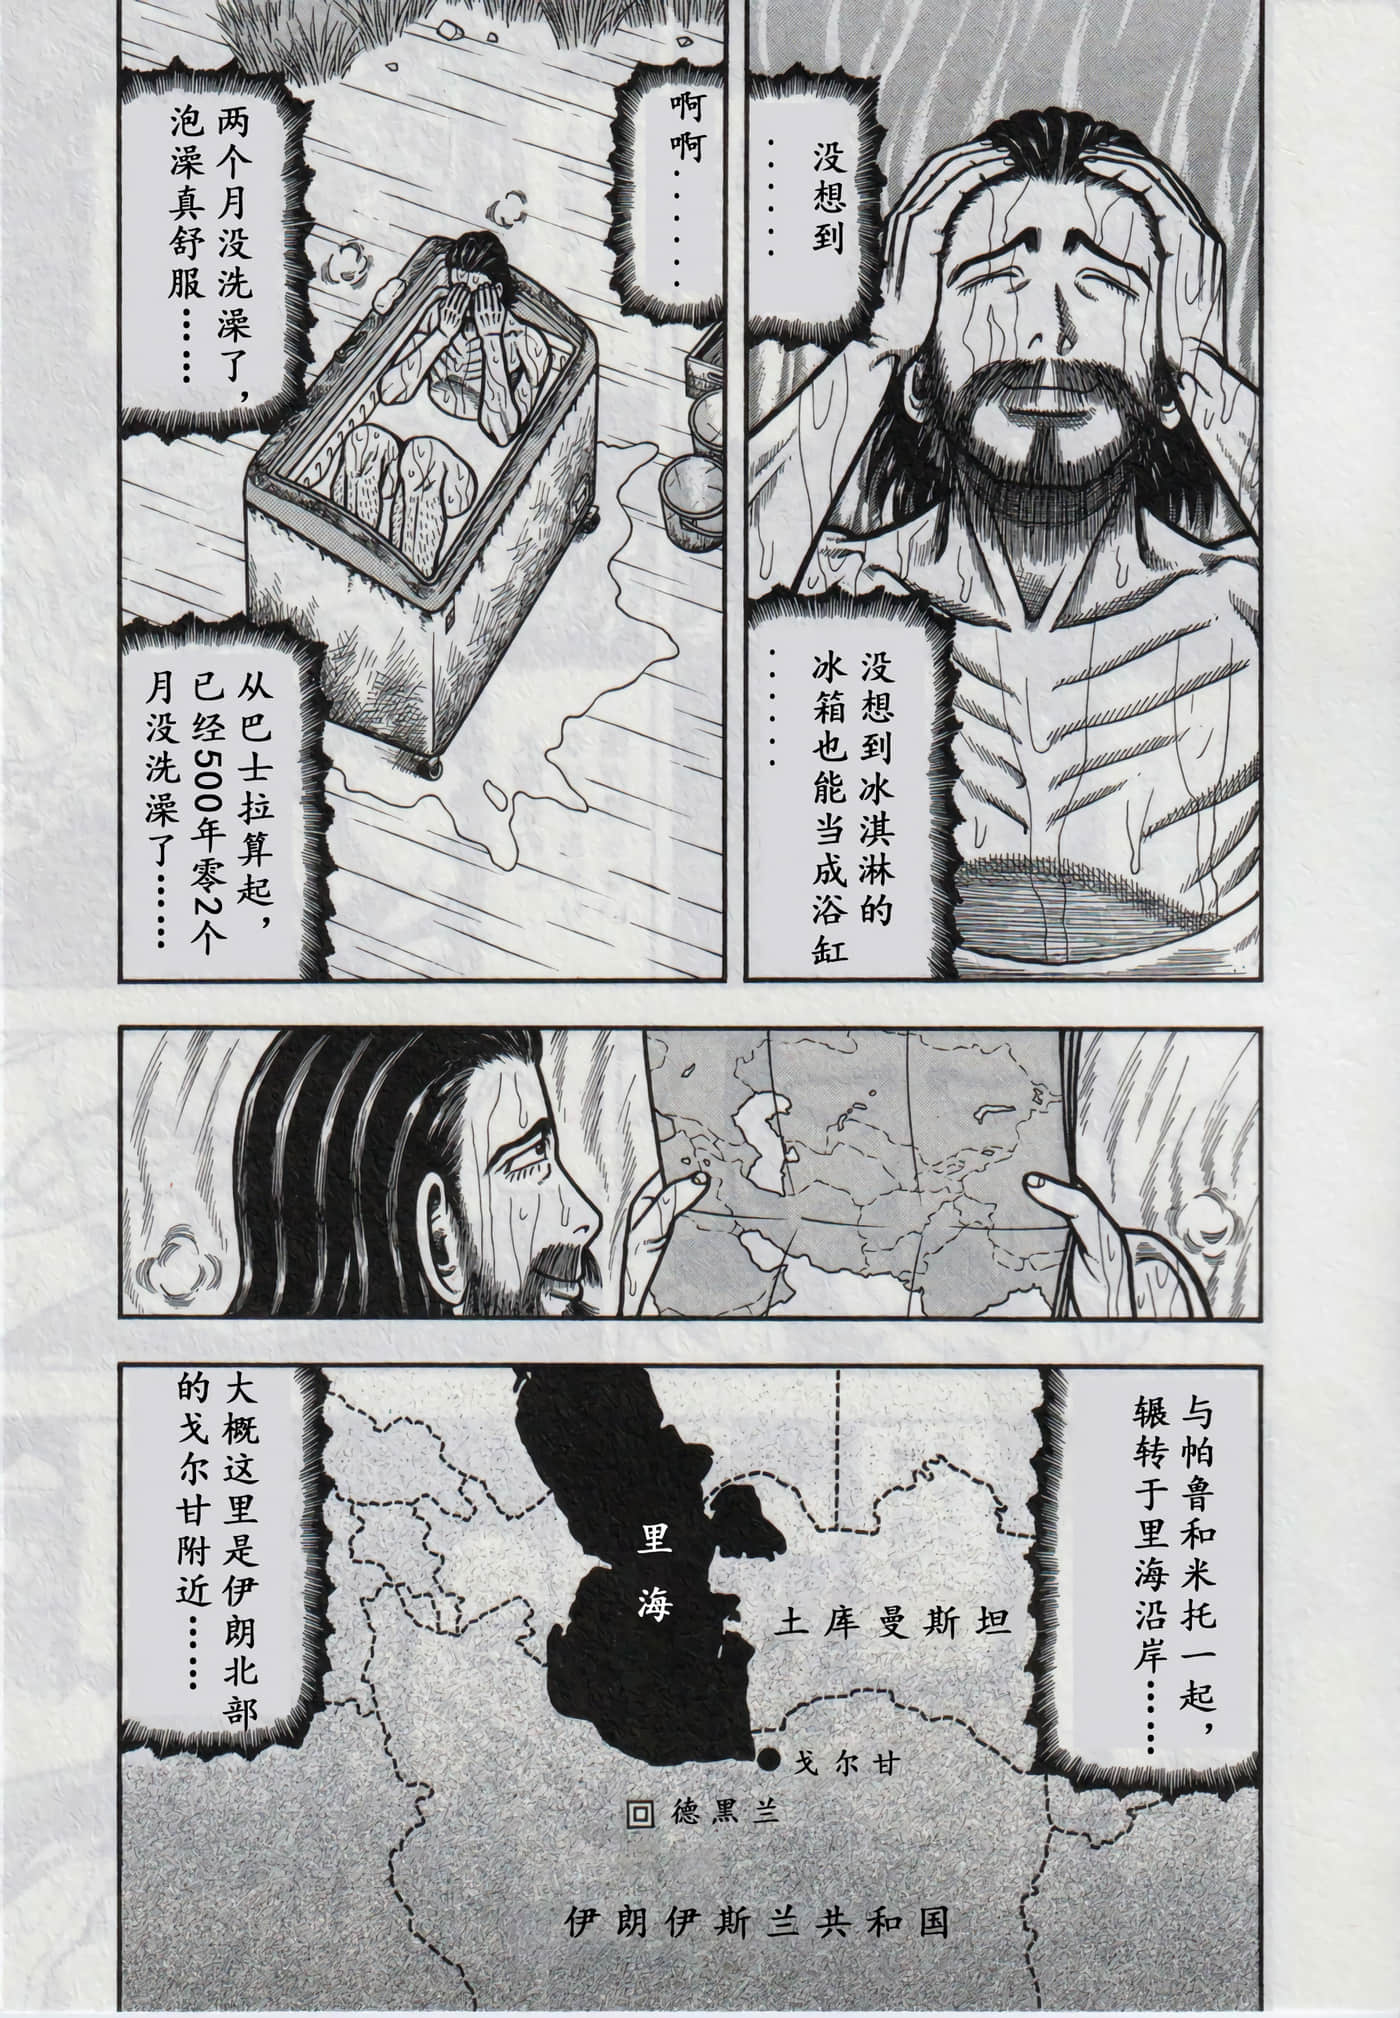 没想到
……
没想到冰淇淋的
冰箱也能当成浴缸
……
啊啊……
两个月没洗澡了，
泡澡真舒服……
从巴士拉算起，
已经500年零2个
月没洗澡了……
与帕鲁和米托一起，
辗转于里海沿岸……
大概这里是伊朗北部
的戈尔甘附近……
里海
土库曼斯坦
戈尔甘
德黑兰
伊朗伊斯兰共和国